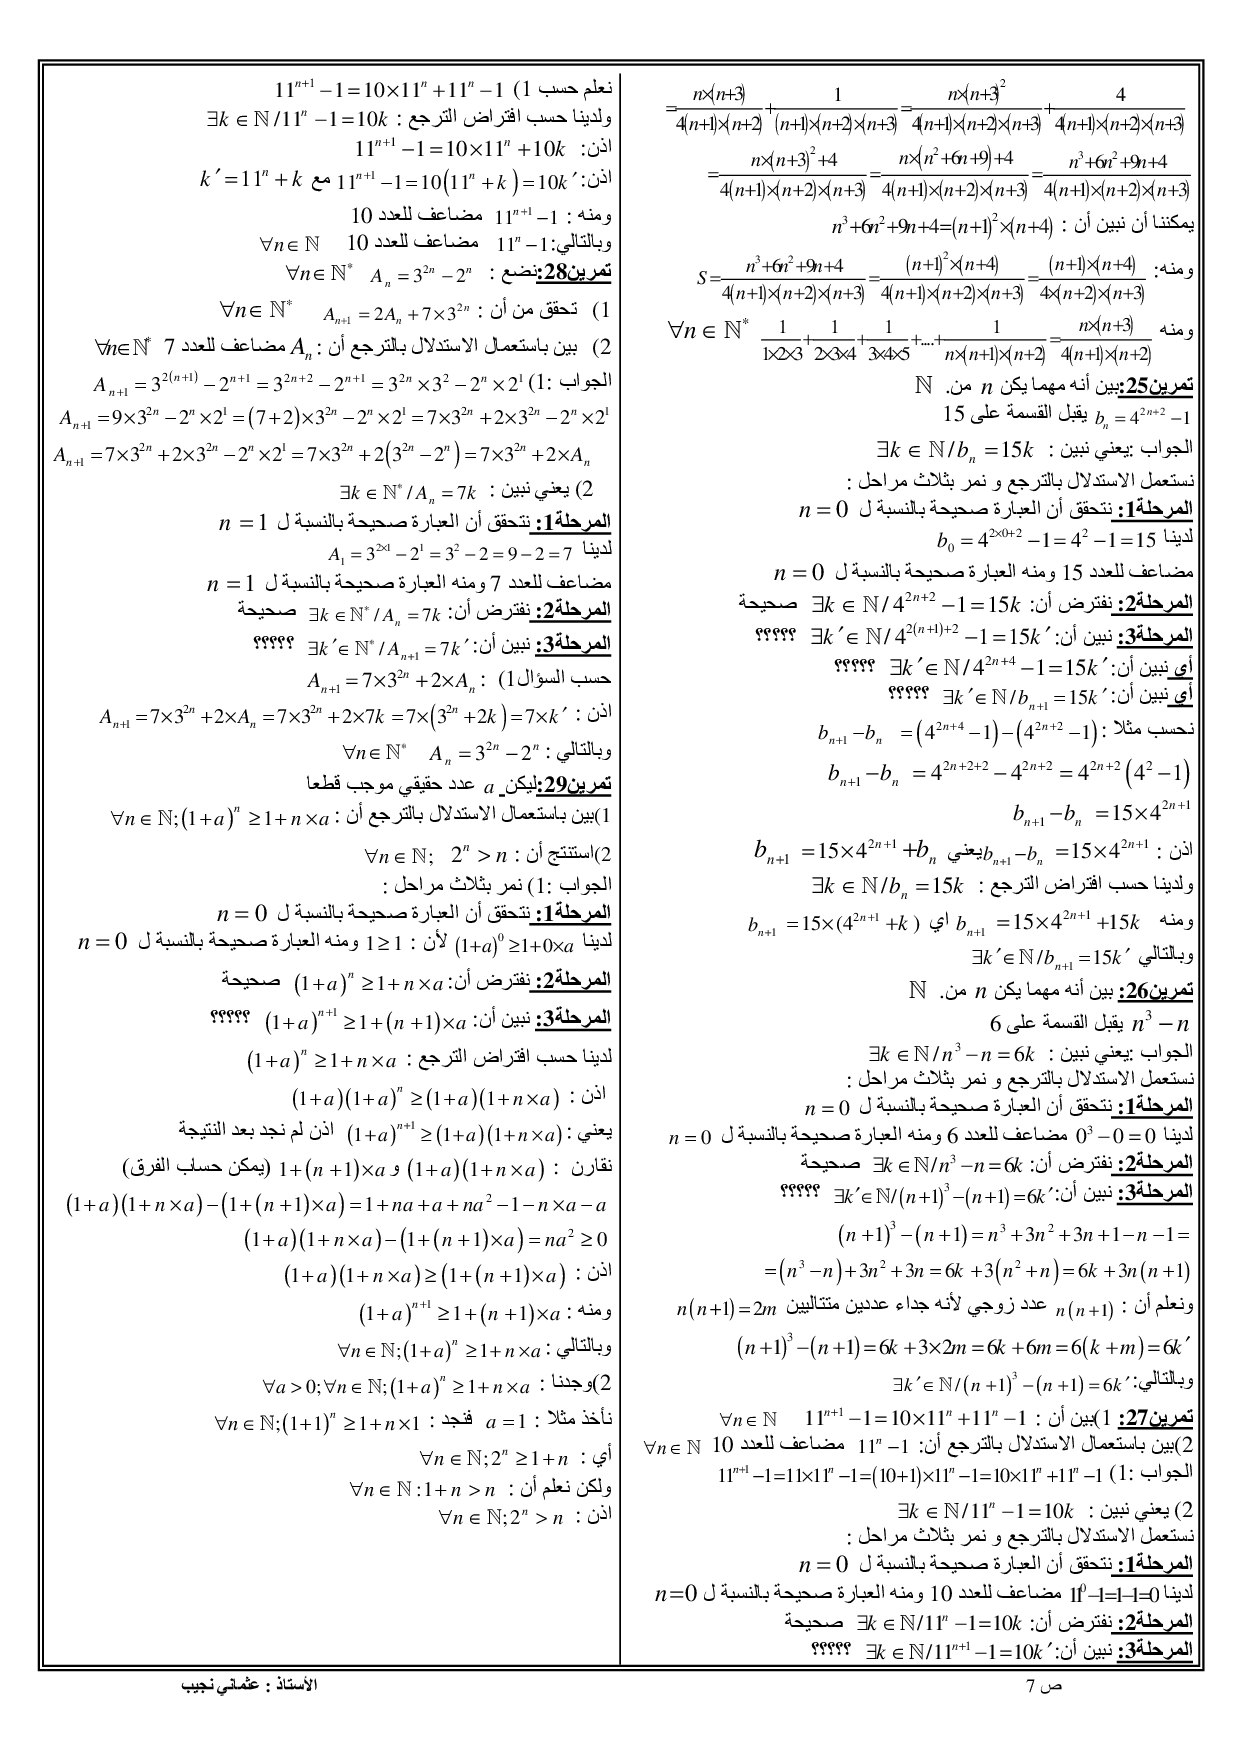 = n×(n+3)/4(n+1)×(n+2) + 1/(n+1)×(n+2)×(n+3) = n×(n+3)²/4(n+1)×(n+2)×(n+3) + 4/4(n+1)×(n+2)×(n+3)
= n×(n+3)²+4/4(n+1)×(n+2)×(n+3) = n×(n²+6n+9)+4/4(n+1)×(n+2)×(n+3) = n³+6n²+9n+4/4(n+1)×(n+2)×(n+3)
يمكننا أن نبين أن : n³+6n²+9n+4=(n+1)²×(n+4)
ومنه: S = n³+6n²+9n+4/4(n+1)×(n+2)×(n+3) = (n+1)²×(n+4)/4(n+1)×(n+2)×(n+3) = (n+1)×(n+4)/4×(n+2)×(n+3)
ومنه 1/1×2×3 + 1/2×3×4 + 1/3×4×5 +....+ 1/n×(n+1)×(n+2) = n×(n+3)/4(n+1)×(n+2) ∀n ∈ ℕ*
تمرين25:بين أنه مهما يكن n من. ℕ
bₙ = 4²ⁿ⁺² −1 يقبل القسمة على 15
الجواب :يعني نبين : ∃k ∈ ℕ/bₙ =15k
نستعمل الاستدلال بالترجع و نمر بثلاث مراحل :
المرحلة1: نتحقق أن العبارة صحيحة بالنسبة ل n = 0
لدينا b₀ = 4^(2×0+2) −1 = 4² −1 = 15
مضاعف للعدد 15 ومنه العبارة صحيحة بالنسبة ل n = 0
المرحلة2: نفترض أن: ∃k ∈ ℕ/4²ⁿ⁺² −1=15k صحيحة
المرحلة3: نبين أن: ∃k′∈ ℕ/4^(2(n+1)+2) −1=15k′ ؟؟؟؟؟
أي نبين أن: ∃k′∈ ℕ/4²ⁿ⁺⁴ −1=15k′ ؟؟؟؟؟
أي نبين أن: ∃k′∈ ℕ/bₙ₊₁ =15k′ ؟؟؟؟؟
نحسب مثلا : bₙ₊₁ −bₙ = (4²ⁿ⁺⁴ −1)−(4²ⁿ⁺² −1)
bₙ₊₁ −bₙ = 4²ⁿ⁺²⁺² −4²ⁿ⁺² = 4²ⁿ⁺² (4² −1)
bₙ₊₁ −bₙ =15×4²ⁿ⁺¹
اذن : bₙ₊₁ −bₙ =15×4²ⁿ⁺¹ يعني bₙ₊₁ =15×4²ⁿ⁺¹ +bₙ
ولدينا حسب افتراض الترجع : ∃k ∈ ℕ/bₙ =15k
ومنه bₙ₊₁ =15×4²ⁿ⁺¹ +15k اي bₙ₊₁ =15×(4²ⁿ⁺¹ +k)
وبالتالي ∃k′∈ ℕ/bₙ₊₁ =15k′
تمرين26: بين أنه مهما يكن n من. ℕ
n³ − n يقبل القسمة على 6
الجواب :يعني نبين : ∃k ∈ℕ/n³ −n = 6k
نستعمل الاستدلال بالترجع و نمر بثلاث مراحل :
المرحلة1: نتحقق أن العبارة صحيحة بالنسبة ل n = 0
لدينا 0³ −0 = 0 مضاعف للعدد 6 ومنه العبارة صحيحة بالنسبة ل n = 0
المرحلة2: نفترض أن: ∃k ∈ℕ/n³ −n = 6k صحيحة
المرحلة3: نبين أن: ∃k′∈ℕ/(n+1)³ −(n+1) = 6k′ ؟؟؟؟؟
(n+1)³ −(n+1) = n³ +3n² +3n +1−n −1=
=(n³ −n)+3n² +3n = 6k +3(n² +n) = 6k +3n(n+1)
ونعلم أن : n(n+1) عدد زوجي لأنه جداء عددين متتاليين n(n+1) = 2m
(n+1)³ −(n+1) = 6k +3×2m = 6k +6m = 6(k +m) = 6k′
وبالتالي: ∃k′∈ℕ/(n+1)³ −(n+1) = 6k′
تمرين27: 1)بين أن : 11ⁿ⁺¹ −1=10×11ⁿ +11ⁿ −1 ∀n∈ℕ
2)بين باستعمال الاستدلال بالترجع أن: 11ⁿ −1 مضاعف للعدد 10 ∀n∈ℕ
الجواب :1) 11ⁿ⁺¹ −1=11×11ⁿ −1=(10+1)×11ⁿ −1=10×11ⁿ +11ⁿ −1
2) يعني نبين : ∃k ∈ℕ/11ⁿ −1=10k
نستعمل الاستدلال بالترجع و نمر بثلاث مراحل :
المرحلة1: نتحقق أن العبارة صحيحة بالنسبة ل n = 0
لدينا 11⁰−1=1−1=0 مضاعف للعدد 10 ومنه العبارة صحيحة بالنسبة ل n=0
المرحلة2: نفترض أن: ∃k ∈ℕ/11ⁿ −1=10k صحيحة
المرحلة3: نبين أن: ∃k ∈ℕ/11ⁿ⁺¹ −1=10k′ ؟؟؟؟؟
نعلم حسب 1) 11ⁿ⁺¹ −1=10×11ⁿ +11ⁿ −1
ولدينا حسب افتراض الترجع : ∃k ∈ ℕ/11ⁿ −1=10k
اذن: 11ⁿ⁺¹ −1=10×11ⁿ +10k
اذن: 11ⁿ⁺¹ −1=10(11ⁿ +k)=10k′ مع k′=11ⁿ +k
ومنه : 11ⁿ⁺¹ −1 مضاعف للعدد 10
وبالتالي: 11ⁿ −1 مضاعف للعدد 10 ∀n∈ℕ
تمرين28:نضع : Aₙ = 3²ⁿ −2ⁿ ∀n∈ℕ*
1) تحقق من أن : Aₙ₊₁ = 2Aₙ +7×3²ⁿ ∀n∈ ℕ*
2) بين باستعمال الاستدلال بالترجع أن : Aₙ مضاعف للعدد 7 ∀n∈ℕ*
الجواب :1) Aₙ₊₁ = 3^(2(n+1)) −2ⁿ⁺¹ = 3²ⁿ⁺² −2ⁿ⁺¹ = 3²ⁿ ×3² −2ⁿ ×2¹
Aₙ₊₁ =9×3²ⁿ −2ⁿ ×2¹ =(7+2)×3²ⁿ −2ⁿ ×2¹ =7×3²ⁿ +2×3²ⁿ −2ⁿ ×2¹
Aₙ₊₁ =7×3²ⁿ +2×3²ⁿ −2ⁿ ×2¹ =7×3²ⁿ +2(3²ⁿ −2ⁿ)=7×3²ⁿ +2×Aₙ
2) يعني نبين : ∃k ∈ℕ*/Aₙ = 7k
المرحلة1: نتحقق أن العبارة صحيحة بالنسبة ل n = 1
لدينا A₁ = 3^(2×1) −2¹ = 3² −2 = 9−2 = 7
مضاعف للعدد 7 ومنه العبارة صحيحة بالنسبة ل n = 1
المرحلة2: نفترض أن: ∃k ∈ℕ*/Aₙ = 7k صحيحة
المرحلة3: نبين أن: ∃k′∈ℕ*/Aₙ₊₁ = 7k′ ؟؟؟؟؟
حسب السؤال1) : Aₙ₊₁ =7×3²ⁿ +2×Aₙ
اذن : Aₙ₊₁ =7×3²ⁿ +2×Aₙ =7×3²ⁿ +2×7k =7×(3²ⁿ +2k)=7×k′
وبالتالي : Aₙ = 3²ⁿ −2ⁿ ∀n∈ℕ*
تمرين29:ليكن a عدد حقيقي موجب قطعا
1)بين باستعمال الاستدلال بالترجع أن : ∀n ∈ℕ;(1+a)ⁿ ≥1+n×a
2)استنتج أن : ∀n ∈ℕ; 2ⁿ > n
الجواب :1) نمر بثلاث مراحل :
المرحلة1: نتحقق أن العبارة صحيحة بالنسبة ل n = 0
لدينا (1+a)⁰ ≥1+0×a لأن : 1≥1 ومنه العبارة صحيحة بالنسبة ل n = 0
المرحلة2: نفترض أن: (1+a)ⁿ ≥1+n×a صحيحة
المرحلة3: نبين أن: (1+a)ⁿ⁺¹ ≥1+(n+1)×a ؟؟؟؟؟
لدينا حسب افتراض الترجع : (1+a)ⁿ ≥1+n×a
اذن : (1+a)(1+a)ⁿ ≥(1+a)(1+n×a)
يعني : (1+a)ⁿ⁺¹ ≥(1+a)(1+n×a) اذن لم نجد بعد النتيجة
نقارن : (1+a)(1+n×a) و 1+(n+1)×a (يمكن حساب الفرق)
(1+a)(1+n×a)−(1+(n+1)×a)=1+na+a+na² −1−n×a−a
(1+a)(1+n×a)−(1+(n+1)×a)=na² ≥0
اذن : (1+a)(1+n×a)≥(1+(n+1)×a)
ومنه : (1+a)ⁿ⁺¹ ≥1+(n+1)×a
وبالتالي : ∀n∈ℕ;(1+a)ⁿ ≥1+n×a
2)وجدنا : ∀a > 0;∀n∈ℕ;(1+a)ⁿ ≥1+n×a
نأخذ مثلا : a =1 فنجد : ∀n∈ℕ;(1+1)ⁿ ≥1+n×1
أي : ∀n∈ℕ;2ⁿ ≥1+n
ولكن نعلم أن : ∀n∈ℕ :1+n > n
اذن : ∀n∈ℕ;2ⁿ > n
ص 7
الأستاذ : عثماني نجيب